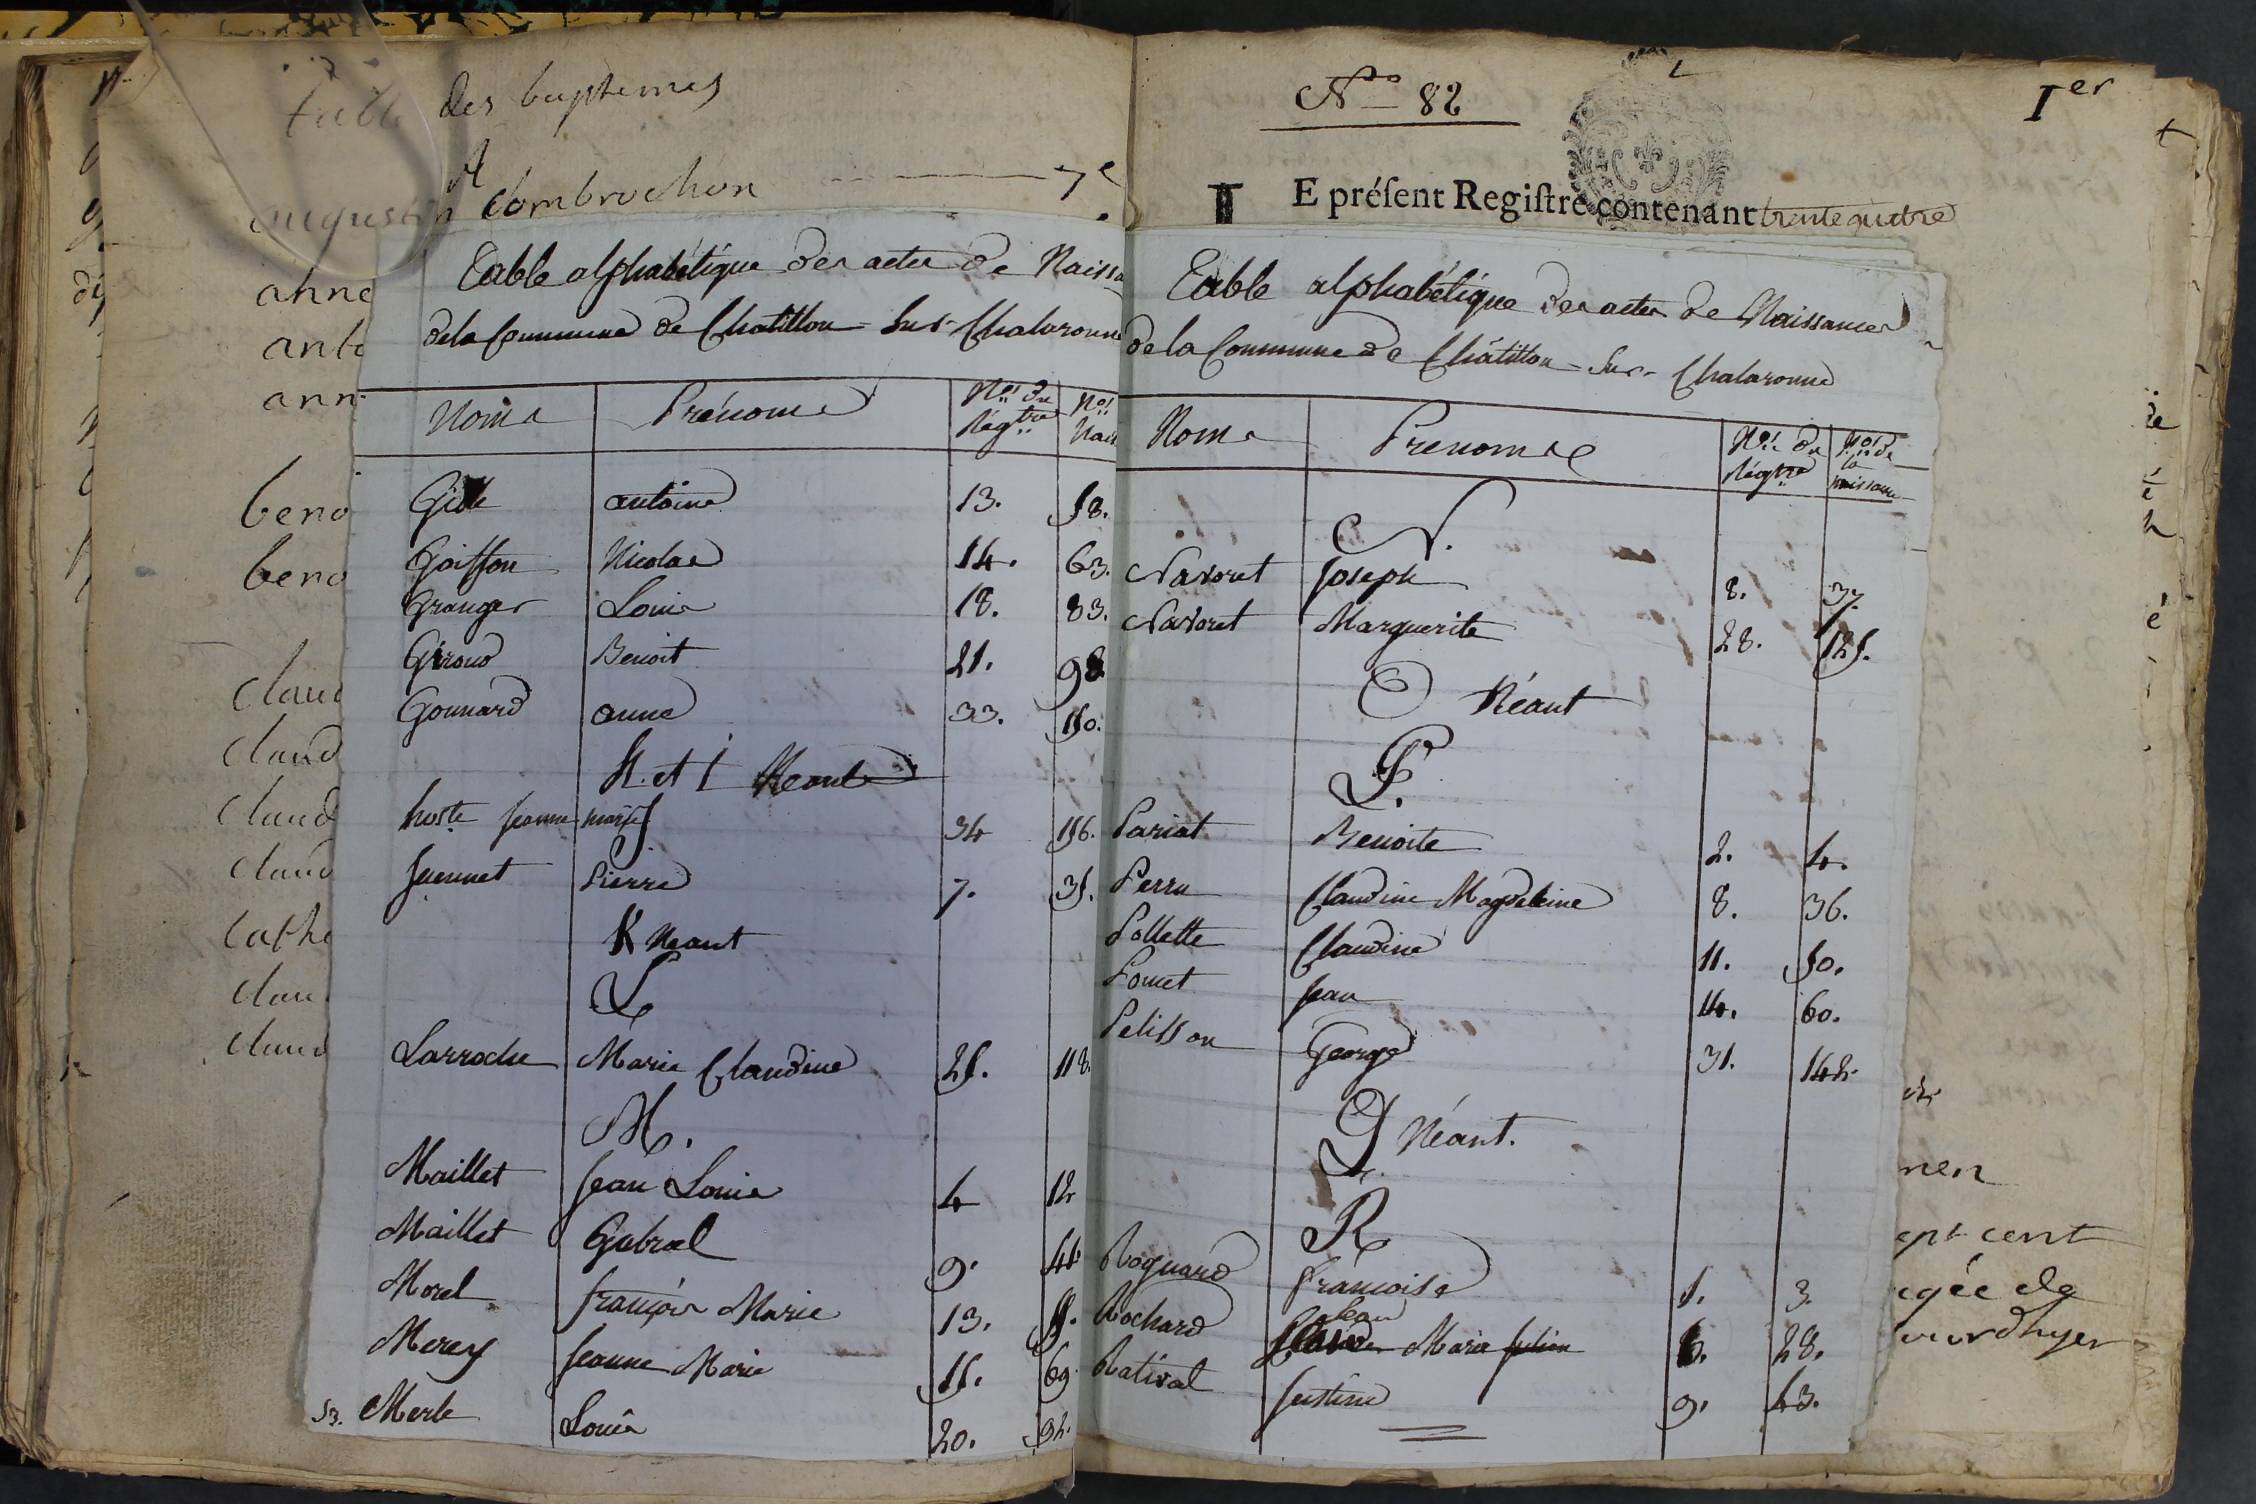 Table des baptemes
A
augustin Combrochon 7e
anne
anto
ann
beno
beno
claud
claud
claud
claud
cathe
clau
claud
Table alphabétique des actes de Naissa
de la Commune de Chatillon-Sur-Chalaronne
Noms Prénoms Nos. du Régtre Nos. Nais
Gide antoine 13. 58.
Goiffon Nicolas 14. 63.
Granger Louis 18. 83.
Giroud Benoit 21. 98
Gonnard anne 33. 150.
H. et I Neant
hoste jeanne marie 34 156.
J
Juennet Pierre 7. 35.
K Neant
L
Larroche Marie Claudine 25. 118.
M.
Maillet Jean Louis 4 12
Maillet Gabral 9. 44
Morel françois Marie 13.
Merey Jeanne Marie 15. 69.
53. Merle Louis 20. 92.
No 82
Ier
E préſent Regiſtre contenant trente quatre
Table alphabétique des actes de Naissances
de la Commune de Châtillon-Sur-Chalaronne
Noms Prenoms Nos. du Régtre Nos. de la naissance
N.
Navoret Joseph 8. 37.
Navoret Marguerite 28. 125.
O Néant
P.
Pariat Benoite 2. 4.
Perra Claudine Magdeleine 8. 36.
Pollette Claudine 11. 50.
Pomet Jean 14. 60.
Pelisson George 31. 142.
Q Néant.
R
Roguard françoise 1. 3.
Rochard Jean Marie Julien 6. 28.
Rativat Justine 9. 43.
nen
ept cent
egée de
ourdhyer